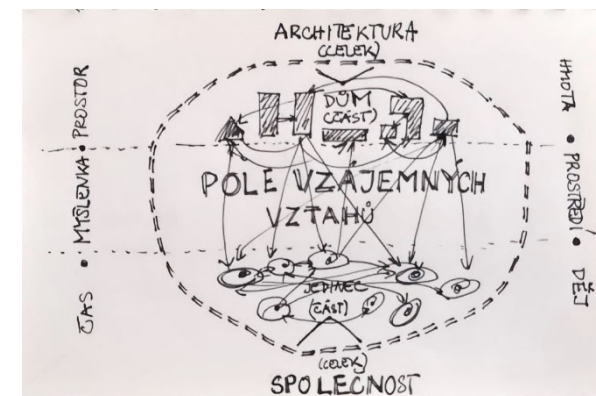 ARCHITEKTURA
(CELEK)
DŮM
(ČÁST)
POLE VZÁJEMNÝCH
VZTAHŮ
JEDINEC
(ČÁST)
(CELEK)
SPOLECNOST
ČAS • MYŠLENKA • PROSTOR
HMOTA • PROSTŘEDÍ • DĚJ